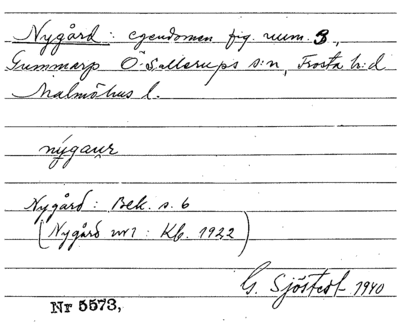 Nygård: egendomen fig. num. 3,
Gummarp Ö. Sallerups s:n, Frosta h:d
Malmöhus l.
nýgaur
Nygård: Bek. s. 6
(Nygård nr 1: Kb. 1922)
G. Sjöstedt 1940
Nr 5573,